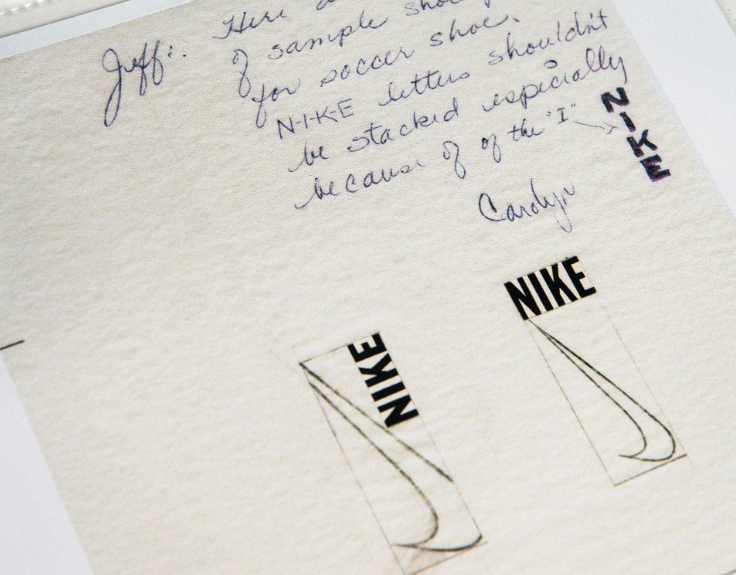 Jeff: Here
of sample shoe
for soccer shoe.
N-I-K-E letters shouldn't
be stacked especially
because of of the "I"
N
I
K
E
Carolyn
NIKE
NIKE